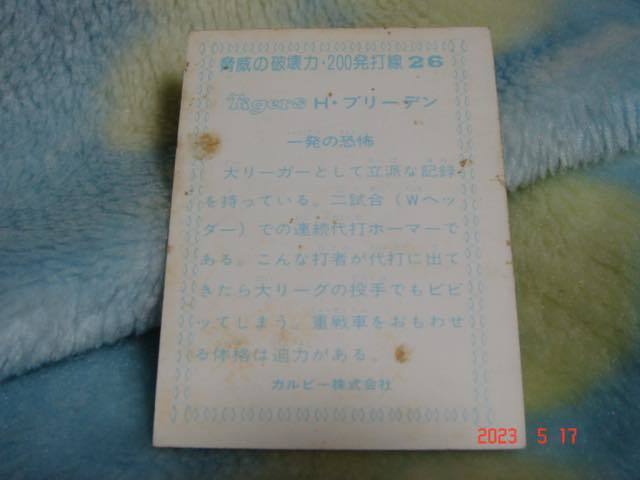 脅威の破壊力・200発打線 26
Tigers H・ブリーデン
一発の恐怖
大リーガーとして立派な記録
を持っている。二試合（Wヘッ
ダー）での連続代打ホーマーで
ある。こんな打者が代打に出て
きたら大リーグの投手でもビビ
ッてしまう。重戦車をおもわせ
る体格は迫力がある。
カルビー株式会社
2023 5 17